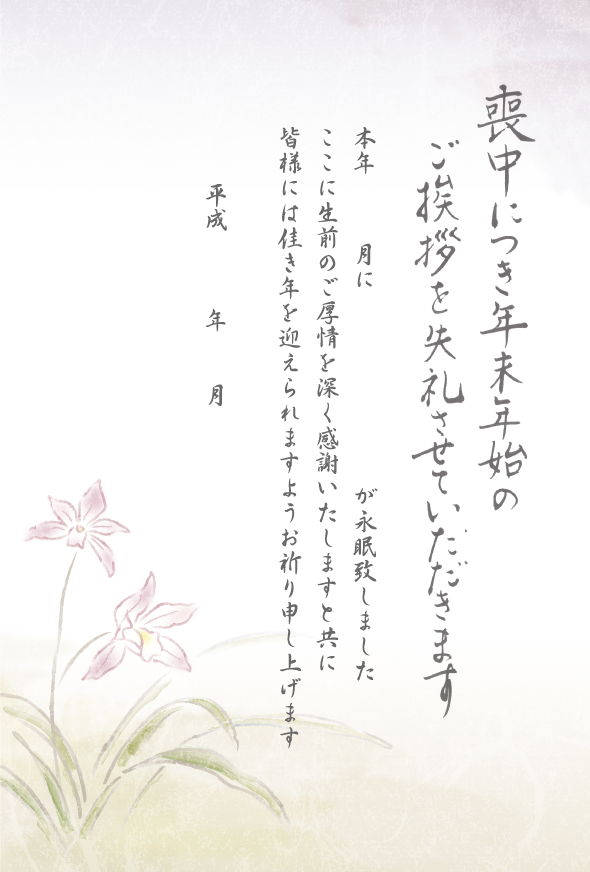 喪中につき年末年始の
ご挨拶を失礼させていただきます
本年 月に が永眠致しました
ここに生前のご厚情を深く感謝いたしますと共に
皆様には佳き年を迎えられますようお祈り申し上げます
平成 年 月